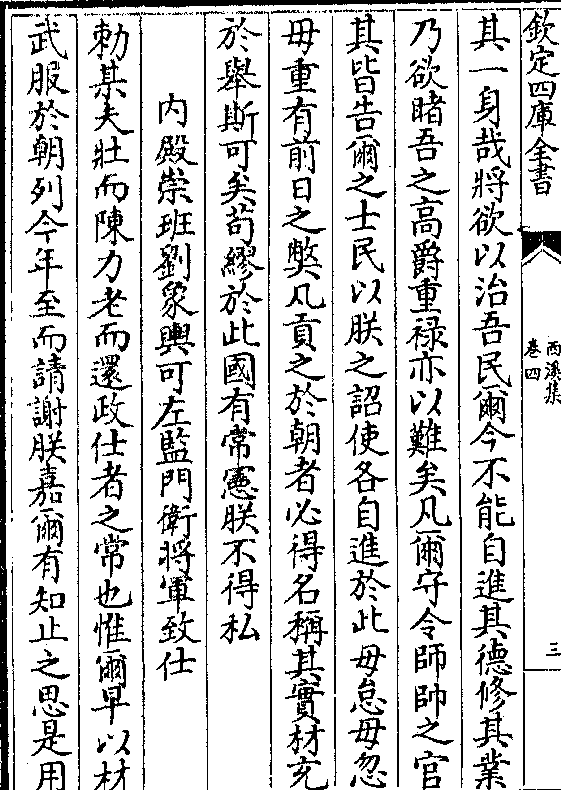 欽定四庫全書
西溪集
卷四
三
其一身哉將欲以治吾民爾今不能自進其德修其業
乃欲睹吾之高爵重祿亦以難矣凡爾守令師帥之官
其皆告爾之士民以朕之詔使各自進於此毋怠毋忽
毋重有前日之弊凡貢之於朝者必得名稱其實材充
於舉斯可矣苟繆於此國有常憲朕不得私
內殿崇班劉象輿可左監門衛將軍致仕
勅某夫壯而陳力老而還政仕者之常也惟爾早以材
武服於朝列今年至而請謝朕嘉爾有知止之思是用